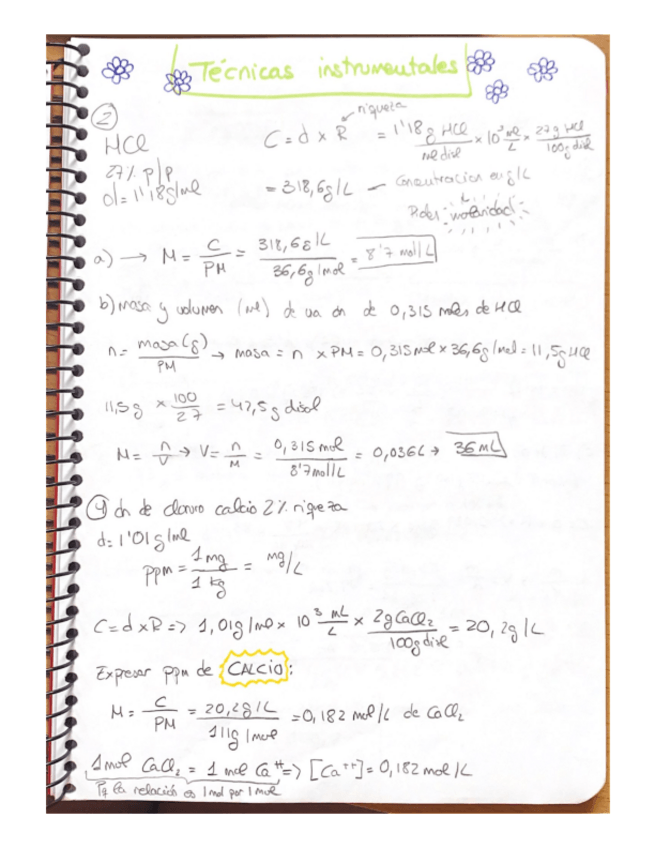 Técnicas instrumentales
② HCl
27% p/p
d = 1'18 g/ml
riqueza
C = d x R = 1'18 g HCl / ml disol x 10³ ml / L x 27 g HCl / 100 g disol
= 318,6 g/L – Concentracion en g/L
Piden molaridad
a) → M = C / PM = 318,6 g/L / 36,6 g/mol = 8'7 mol/L
b) masa y volumen (ml) de una dn de 0,315 moles de HCl
n = masa (g) / PM → masa = n x PM = 0,315 mol x 36,6 g/mol = 11,5 g HCl
11,5 g x 100 / 27 = 42,5 g disol
M = n / V → V = n / M = 0,315 mol / 8'7 mol/L = 0,036 L → 36 mL
④ dn de cloruro calcio 2% riqueza
d = 1'01 g/ml
ppm = 1 mg / 1 kg = mg/L
C = d x R => 1,01 g/ml x 10³ mL / L x 2 g CaCl₂ / 100 g disol = 20,2 g/L
Expresar ppm de CALCIO:
M = C / PM = 20,2 g/L / 111 g/mol = 0,182 mol/L de CaCl₂
1 mol CaCl₂ = 1 mol Ca⁺⁺ => [Ca⁺⁺] = 0,182 mol/L
Pq la relación es 1 mol por 1 mol